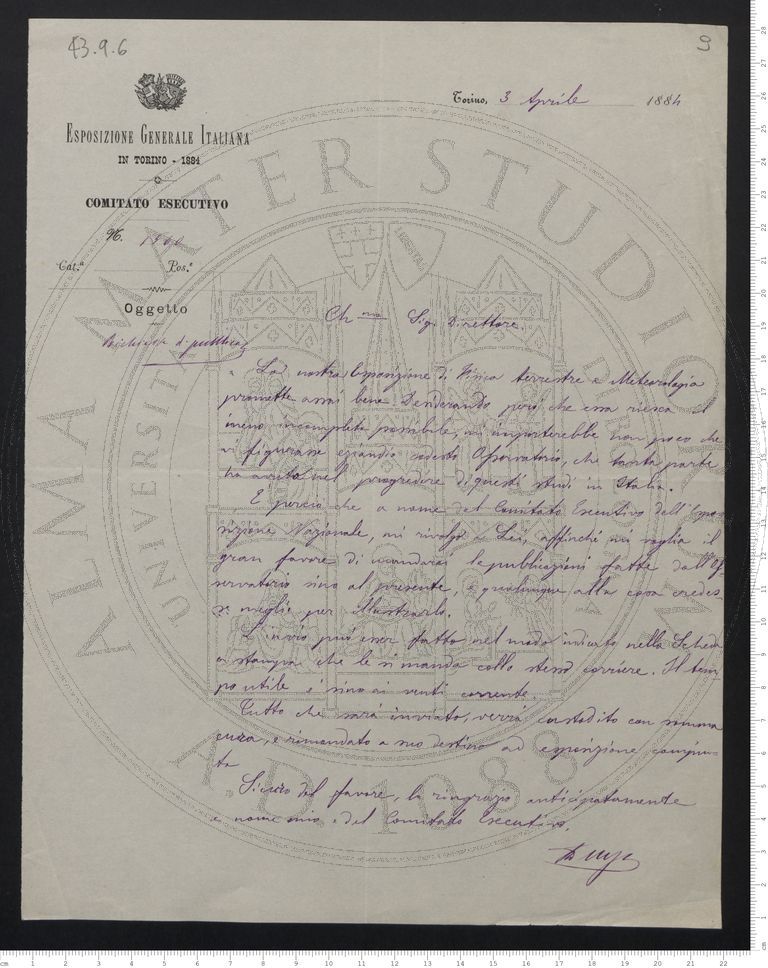 43.9.6
9
Torino, 3 Aprile 1884
ESPOSIZIONE GENERALE ITALIANA
IN TORINO - 1884
COMITATO ESECUTIVO
Cat.ª Pos.e
Oggetto
Richiesta di pubblicaz
Ch mo Sig. Direttore.
La nostra Esposizione di Fisica terrestre e Meteorologia
promette assai bene. Desiderando però, che essa riesca il
meno incompleta possibile, mi importerebbe non poco che
vi figurasse eziandio codesto Osservatorio, che tanta parte
ha avuto nel progredire di questi studi in Italia.
È perciò che a nome del Comitato Esecutivo dell'Espo
sizione Nazionale, mi rivolgo a Lei, affinchè mi voglia il
gran favore di mandarci le pubblicazioni fatte dall'Os
servatorio sino al presente, e qualunque alla cosa credes
se meglio per illustrarlo.
L'invio può esser fatto nel modo indicato nella Scheda
a stampa che le si manda collo stesso corriere. Il tem
po utile è sino ai venti corrente.
Tutto che sarà inviato, verrà custodito con somma
cura, e rimandato a suo destino ad esposizione compiu-
ta
Sicuro del favore, la ringrazio anticipatamente
a nome mio e del Comitato Esecutivo.
ALMA MATER STUDIORUM
UNIVERSITA
A.D. 1088